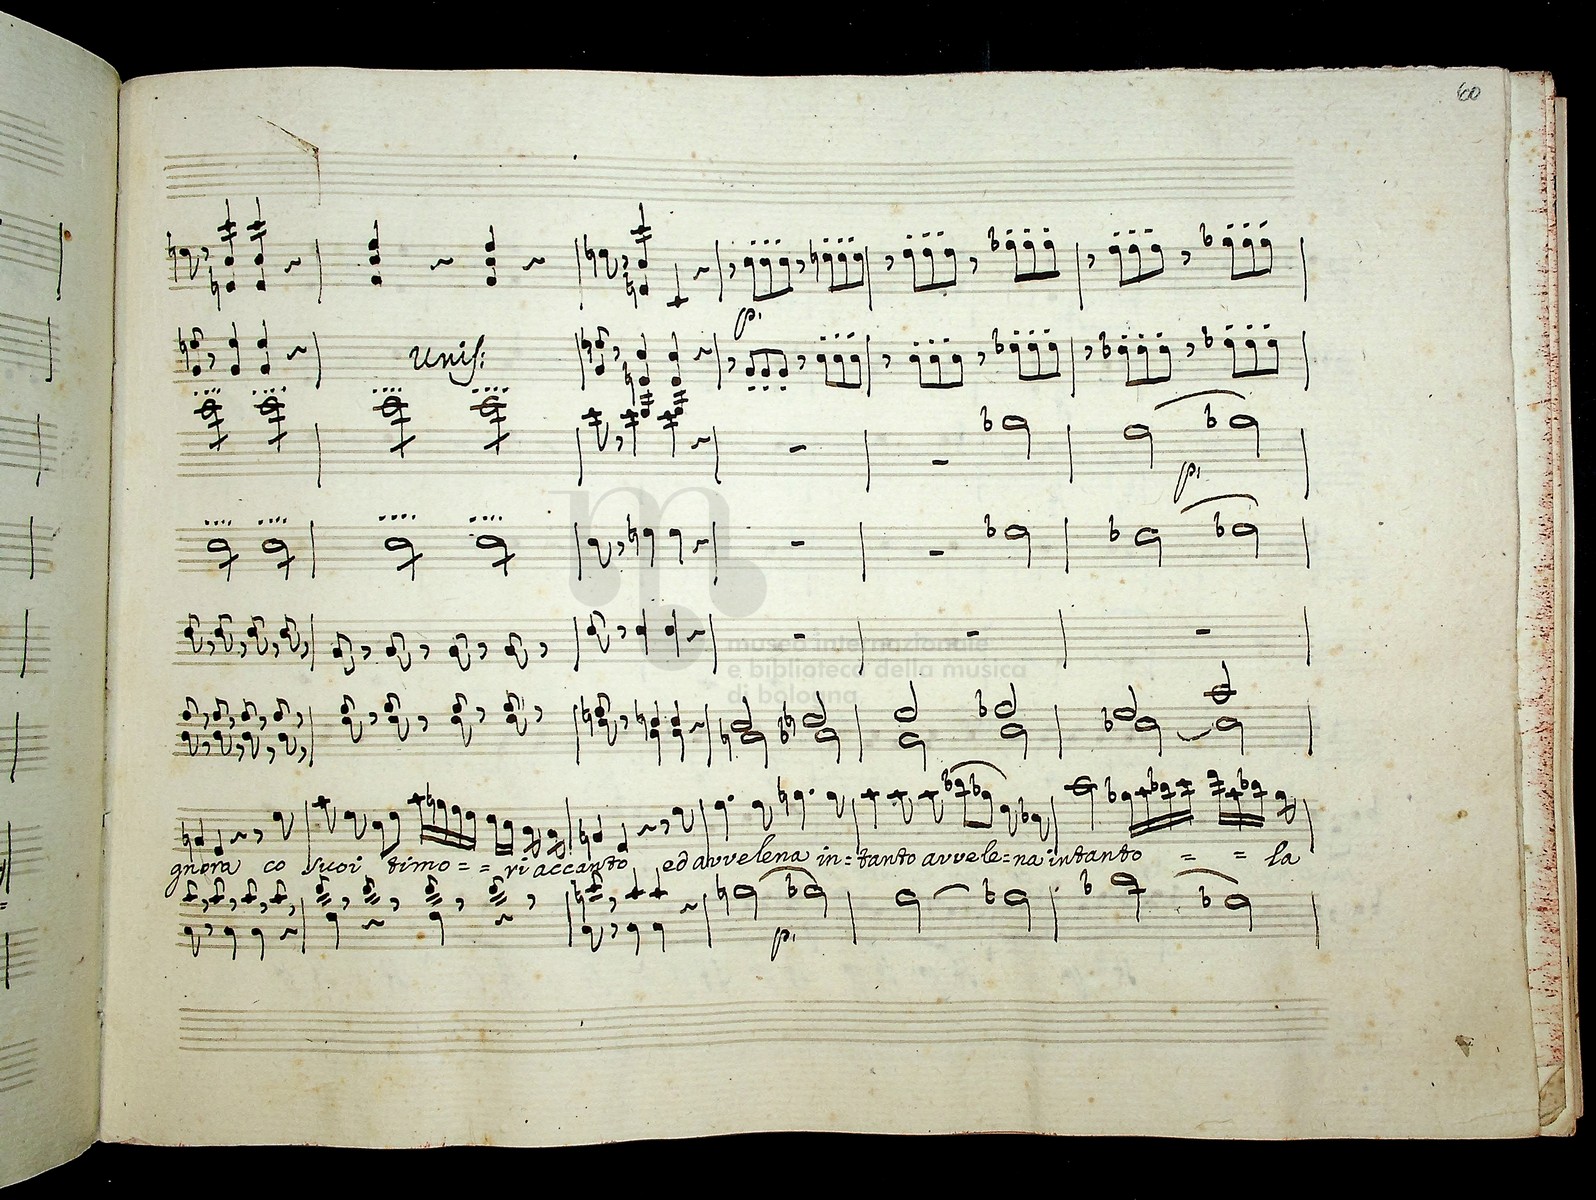 60
Unis:
p.
p.
museo internazionale
e biblioteca della musica
di bologna
gnora co suoi timo = = ri accanto ed avvelena in = tanto avvele = na intanto = = la
p.